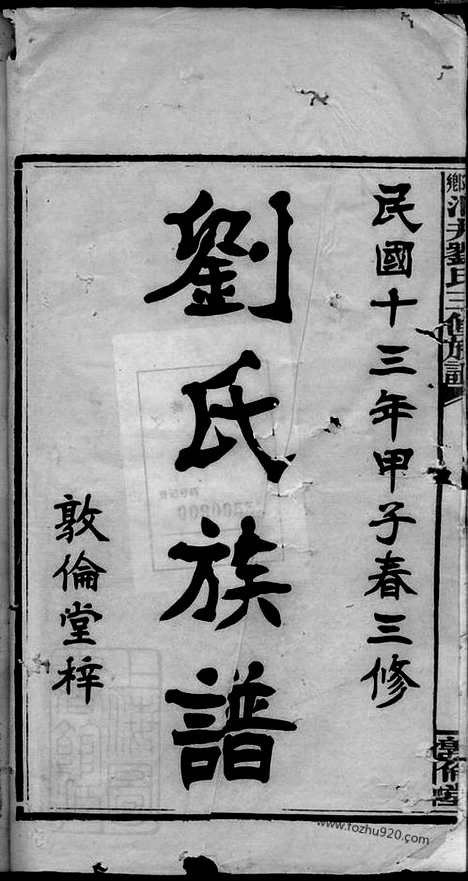 民國十三年甲子春三修
劉氏族譜
敦倫堂梓
劉氏三修族譜
www.fozhu920.com